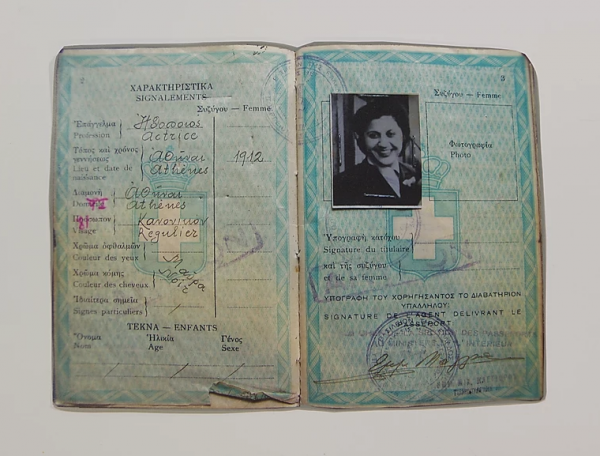 2
ΧΑΡΑΚΤΗΡΙΣΤΙΚΑ
SIGNALEMENTS
Συζύγου — Femme
Ἐπάγγελμα
Profession
Ἠθοποιός
Actrice
Τόπος καὶ χρόνος
γεννήσεως
Lieu et date de
naissance
Ἀθῆναι
Athènes
1912
Διαμονή
Ἀθῆναι
Athènes
Πρόσωπον
Visage
Κανονικόν
Régulier
Χρῶμα ὀφθαλμῶν
Couleur des yeux
Χρῶμα κόμης
Couleur des cheveux
Ἰδιαίτερα σημεῖα
Signes particuliers
ΤΕΚΝΑ — ENFANTS
Ὄνομα Ἡλικία Γένος
Nom Age Sexe
3
Συζύγου — Femme
Φωτογραφία
Photo
Ὑπογραφὴ κατόχου
Signature du titulaire
καὶ τῆς συζύγου
et de sa femme
ΥΠΟΓΡΑΦΗ ΤΟΥ ΧΟΡΗΓΗΣΑΝΤΟΣ ΤΟ ΔΙΑΒΑΤΗΡΙΟΝ
ΥΠΑΛΛΗΛΟΥ
SIGNATURE DE L'AGENT DELIVRANT LE
PASSEPORT